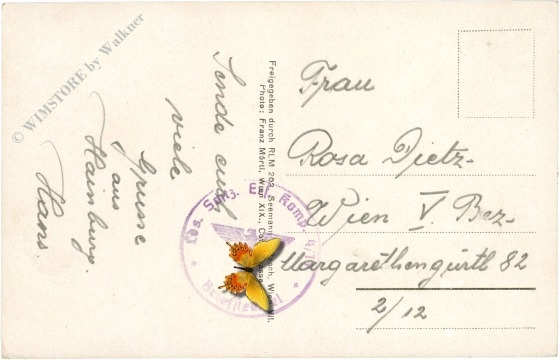 © WIMSTORE by Walkner
Sende euch
viele
Grüsse
aus
Hainburg.
Hans.
Freigegeben durch RLM 202, Seemann
Photo: Franz Mörtl, Wien XIX.,
Frau
Rosa Dietz-
Wien V. Bez-
Margarethengürtl 82
2/12